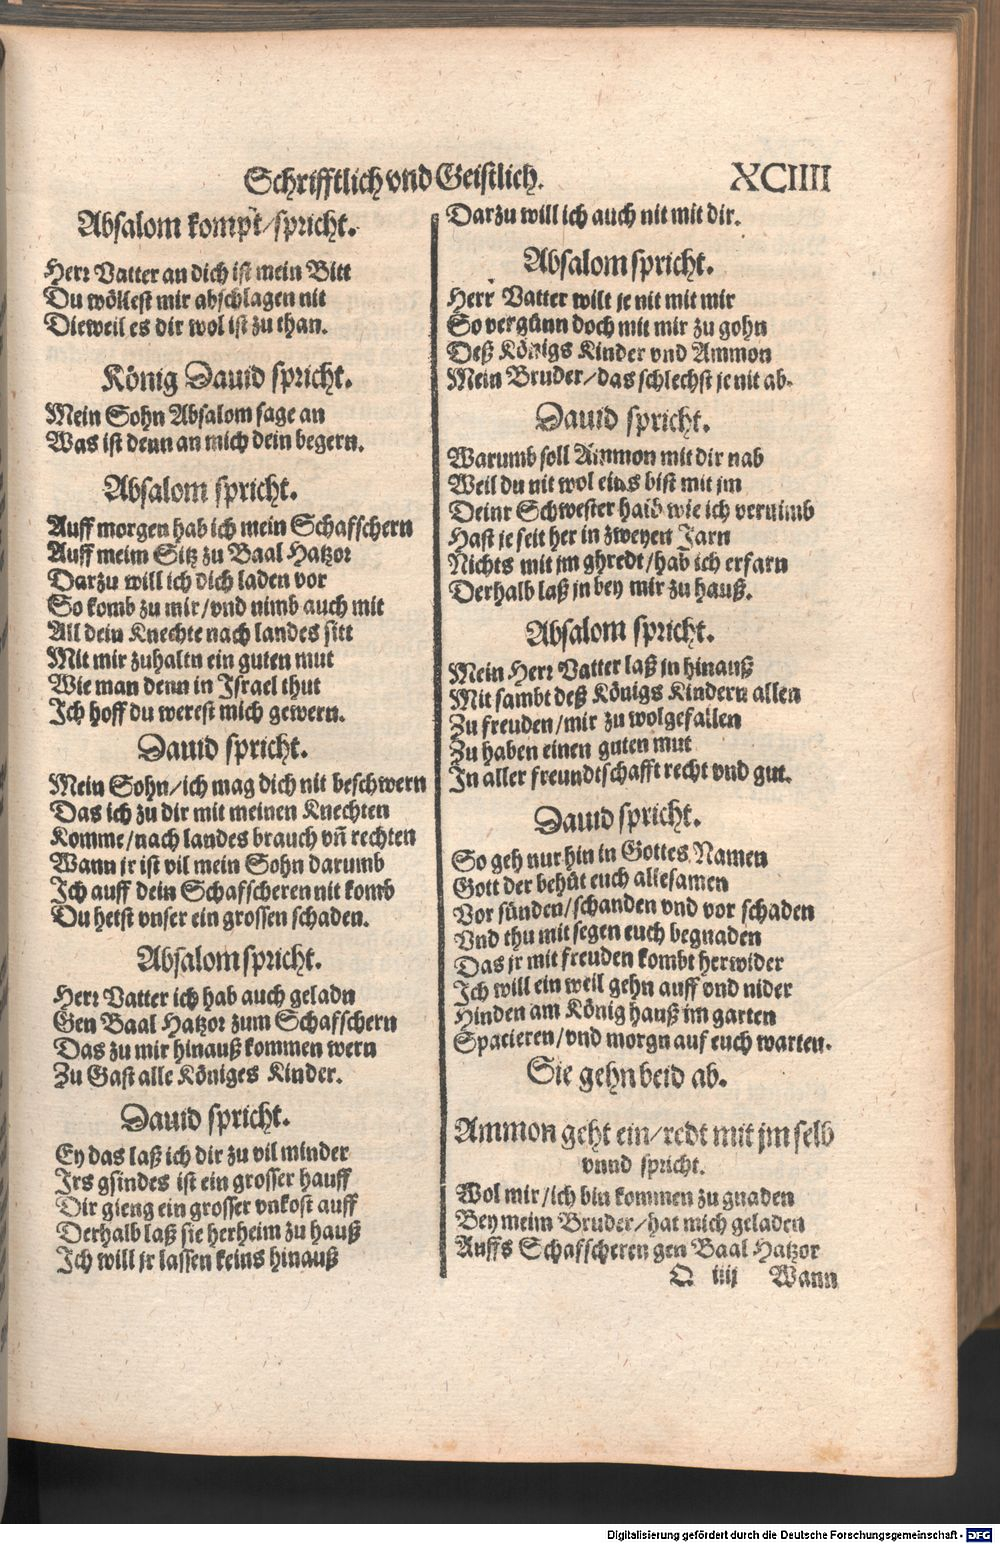 Schrifftlich vnd Geistlich. XCIIII
Absalom kompt/spricht.
Herr Vatter an dich ist mein Bitt
Du wöllest mir abschlagen nit
Dieweil es dir wol ist zu than.
König Dauid spricht.
Mein Sohn Absalom sage an
Was ist denn an mich dein begern.
Absalom spricht.
Auff morgen hab ich mein Schafschern
Auff meim Sitz zu Baal Hatzor
Darzu will ich dich laden vor
So komb zu mir/vnd nimb auch mit
All dein Knechte nach landes sitt
Mit mir zuhaltn ein guten mut
Wie man denn in Israel thut
Ich hoff du werest mich gewern.
Dauid spricht.
Mein Sohn/ich mag dich nit beschwern
Das ich zu dir mit meinen Knechten
Komme/nach landes brauch vñ rechten
Wann jr ist vil mein Sohn darumb
Ich auff dein Schafscheren nit komb
Du hetst vnser ein grossen schaden.
Absalom spricht.
Herr Vatter ich hab auch geladn
Gen Baal Hatzor zum Schafschern
Das zu mir hinauß kommen wern
Zu Gast alle Königes Kinder.
Dauid spricht.
Ey das laß ich dir zu vil minder
Irs gsindes ist ein grosser hauff
Dir gieng ein grosser vnkost auff
Derhalb laß sie herheim zu hauß
Ich will jr lassen keins hinauß
Darzu will ich auch nit mit dir.
Absalom spricht.
Herr Vatter wilt je nit mit mir
So vergünn doch mit mir zu gohn
Deß Königs Kinder vnd Ammon
Mein Bruder/das schlechst je nit ab.
Dauid spricht.
Warumb soll Ammon mit dir nab
Weil du nit wol eins bist mit jm
Deinr Schwester halb wie ich vernimb
Hast je seit her in zweyen Jarn
Nichts mit jm ghredt/hab ich erfarn
Derhalb laß jn bey mir zu hauß.
Absalom spricht.
Mein Herr Vatter laß jn hinauß
Mit sambt deß Königs Kindern allen
Zu freuden/mir zu wolgefallen
Zu haben einen guten mut
In aller freundtschafft recht vnd gut.
Dauid spricht.
So geh nur hin in Gottes Namen
Gott der behüt euch allesamen
Vor sünden/schanden vnd vor schaden
Vnd thu mit segen euch begnaden
Das jr mit freuden kombt herwider
Ich will ein weil gehn auff vnd nider
Hinden am König hauß im garten
Spacieren/vnd morgn auf euch warten.
Sie gehn beid ab.
Ammon geht ein/redt mit jm selb
vnnd spricht.
Wol mir/ich bin kommen zu gnaden
Bey meim Bruder/hat mich geladen
Auffs Schafscheren gen Baal Hatzor
Q iiij Wann
Digitalisierung gefördert durch die Deutsche Forschungsgemeinschaft - DFG